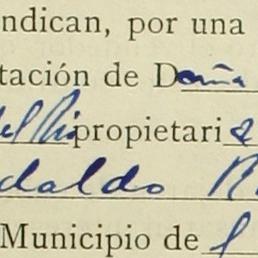 ndican, por una
tación de Doña
del Rio propietari a
daldo R
Municipio de